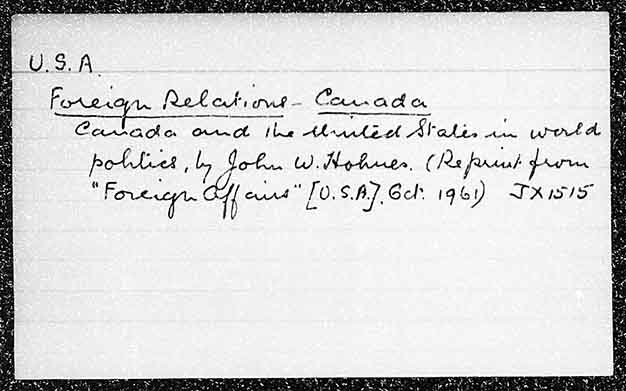 U.S.A.
Foreign Relations - Canada
Canada and the United States in world
politics, by John W. Holmes. (Reprint from
"Foreign Affairs" [U.S.A.], Oct. 1961) JX1515